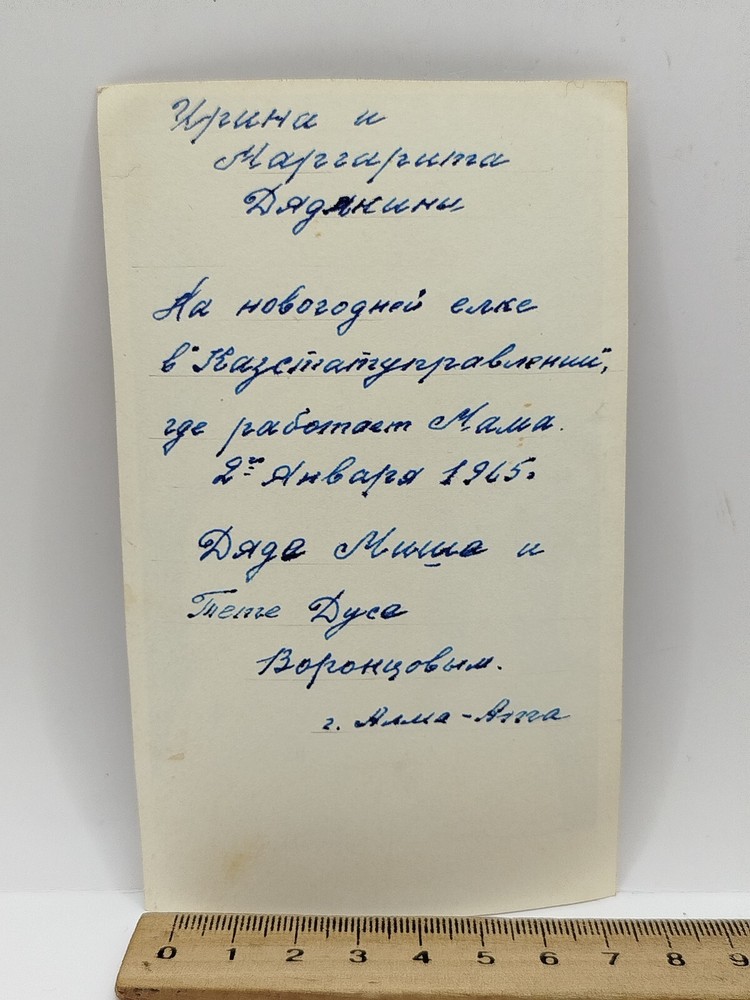 Ирина и
Маргарита
Дядянины
На новогодней елке
в "Казстатуправлении",
где работает Мама.
2го Января 1965г
Дяде Мише и
Тете Дусе
Воронцовым.
г. Алма-Ата
0 1 2 3 4 5 6 7 8 9